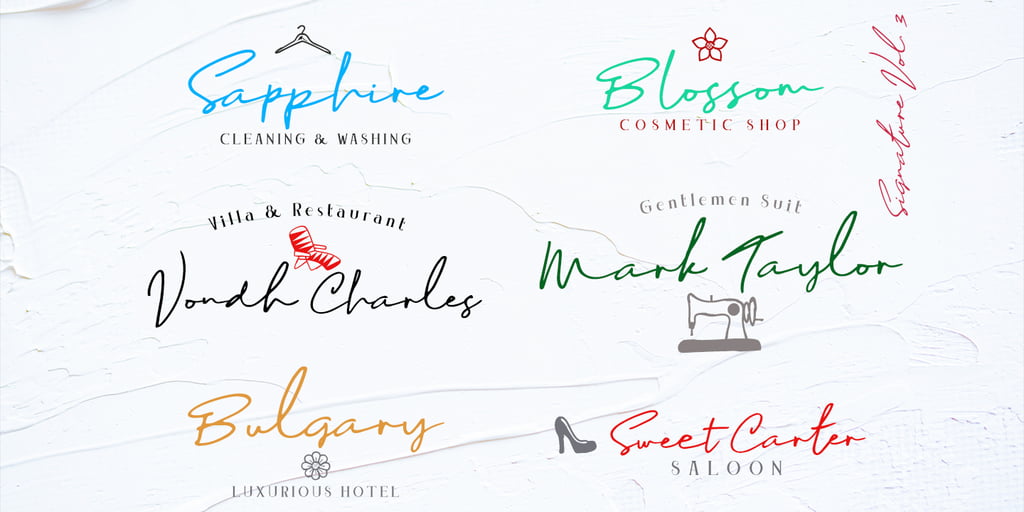 Sapphire
CLEANING & WASHING
Blossom
COSMETIC SHOP
Signature Vol 3
Villa & Restaurant
Vondh Charles
Gentlemen Suit
Mark Taylor
Bulgary
LUXURIOUS HOTEL
Sweet Carter
SALOON